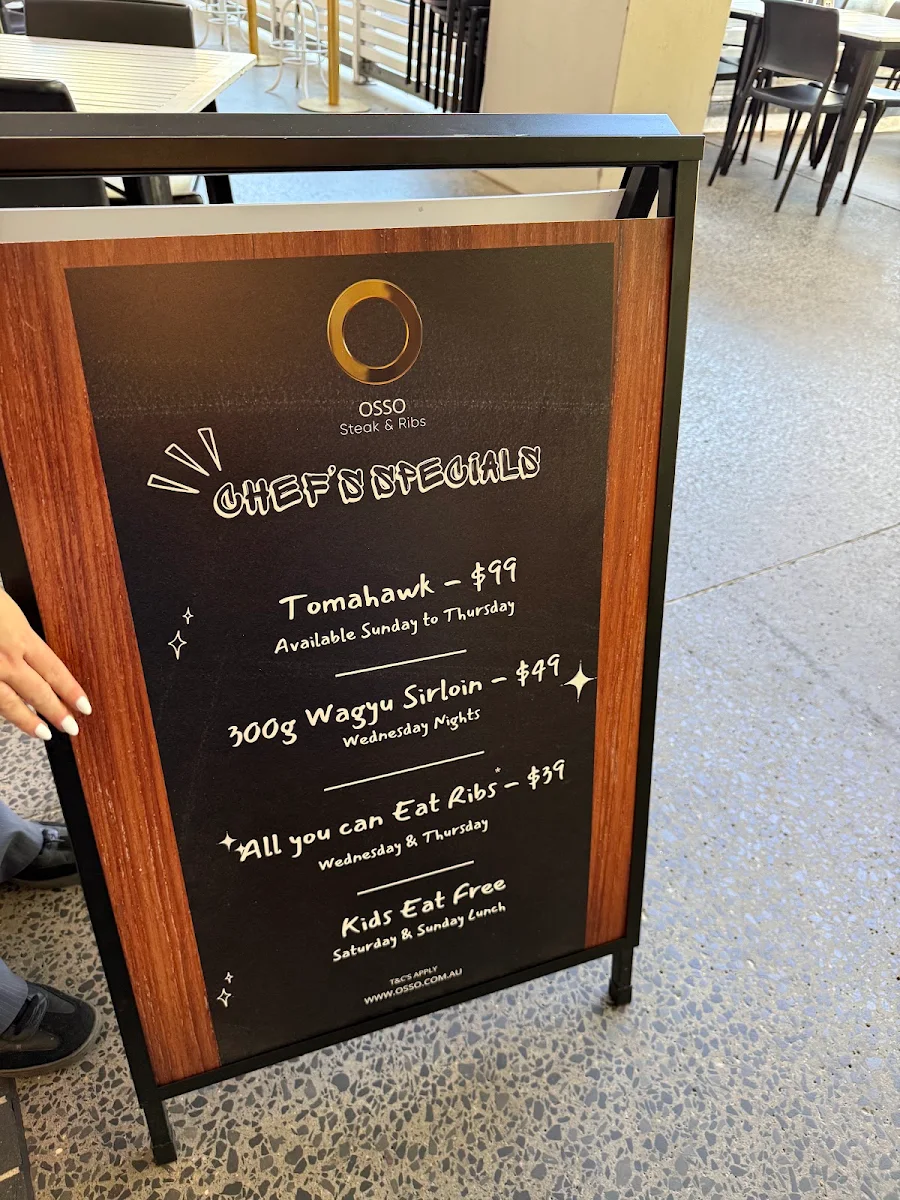 OSSO
Steak & Ribs
CHEF'S SPECIALS
Tomahawk - $99
Available Sunday to Thursday
300g Wagyu Sirloin - $49
Wednesday Nights
All you can Eat Ribs* - $39
Wednesday & Thursday
Kids Eat Free
Saturday & Sunday Lunch
T&C'S APPLY
WWW.OSSO.COM.AU